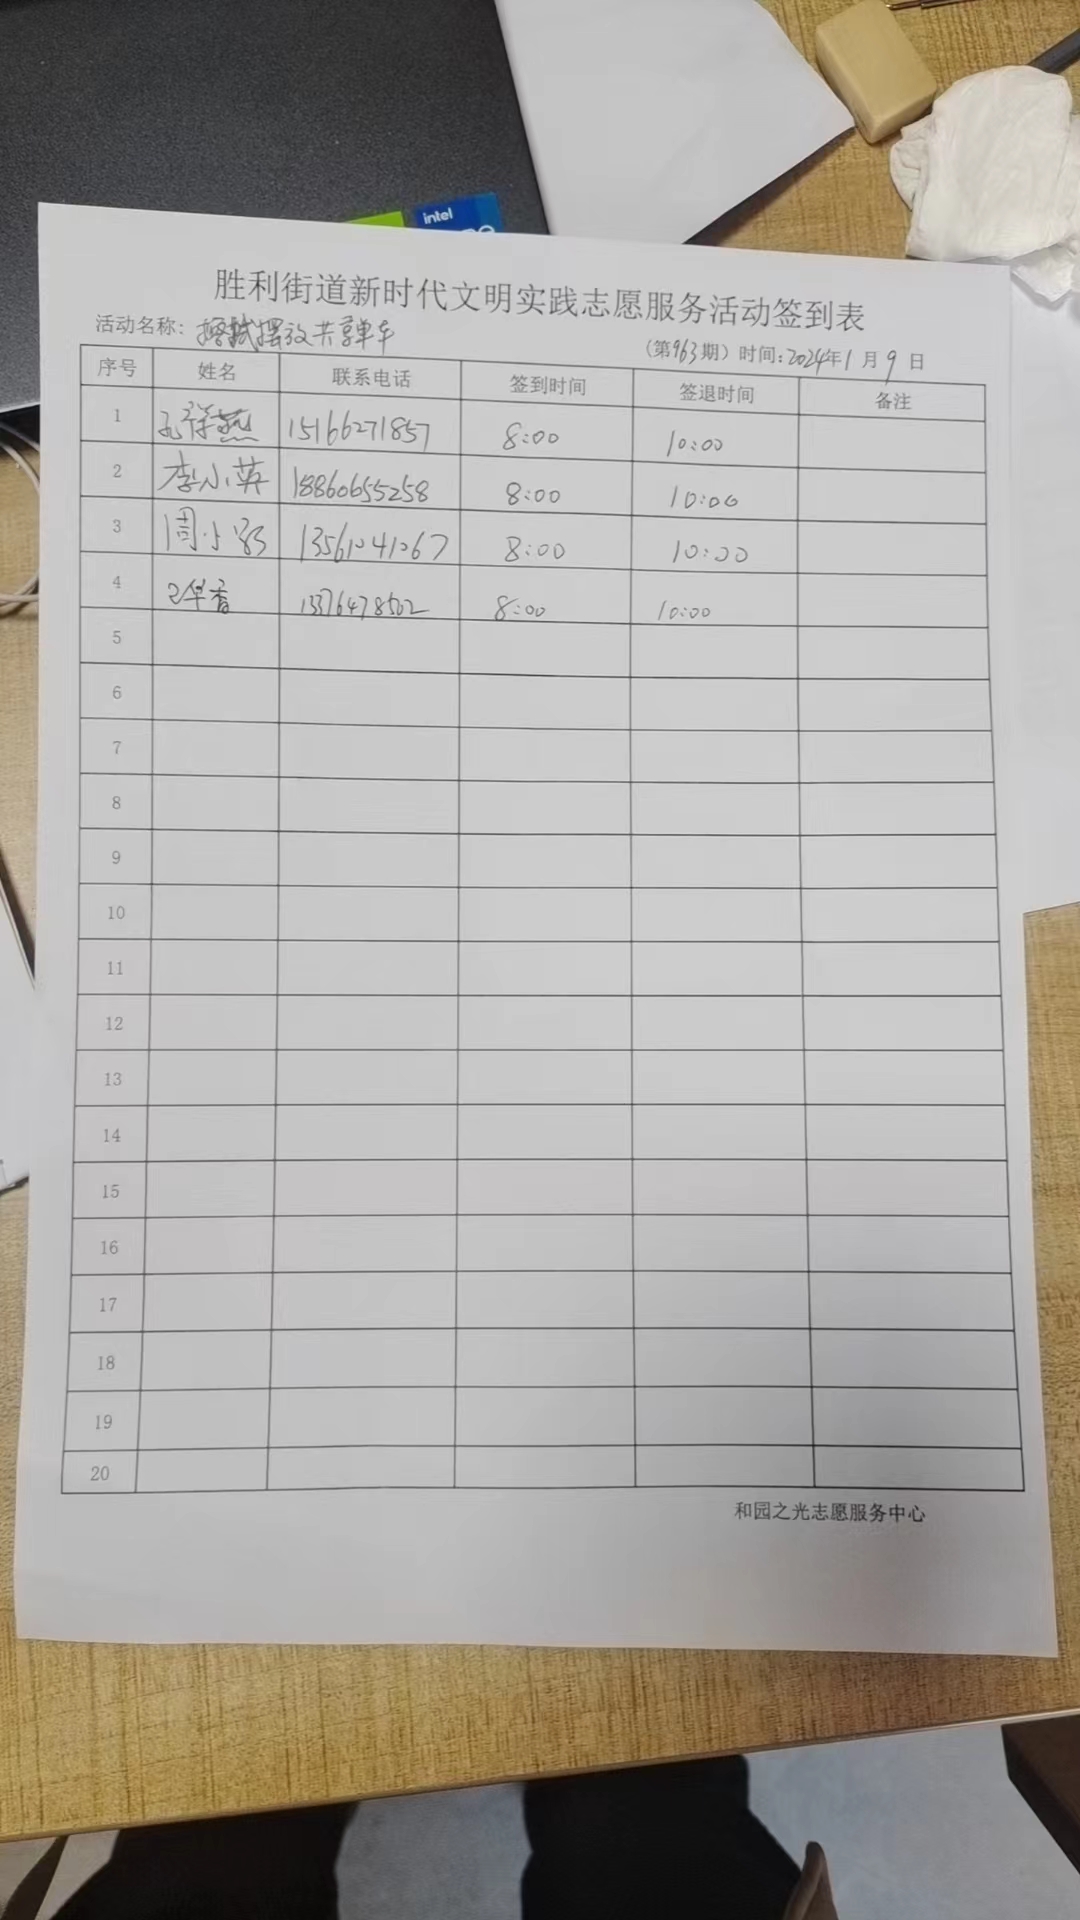 intel
胜利街道新时代文明实践志愿服务活动签到表
活动名称：擦拭摆放共享单车
（第963期）时间：2024年1月9日
序号 姓名 联系电话 签到时间 签退时间 备注
1 孔祥燕 15166271857 8:00 10:00
2 李小英 18860655258 8:00 10:00
3 周小 13561041067 8:00 10:00
4 华香 13376478502 8:00 10:00
5
6
7
8
9
10
11
12
13
14
15
16
17
18
19
20
和园之光志愿服务中心